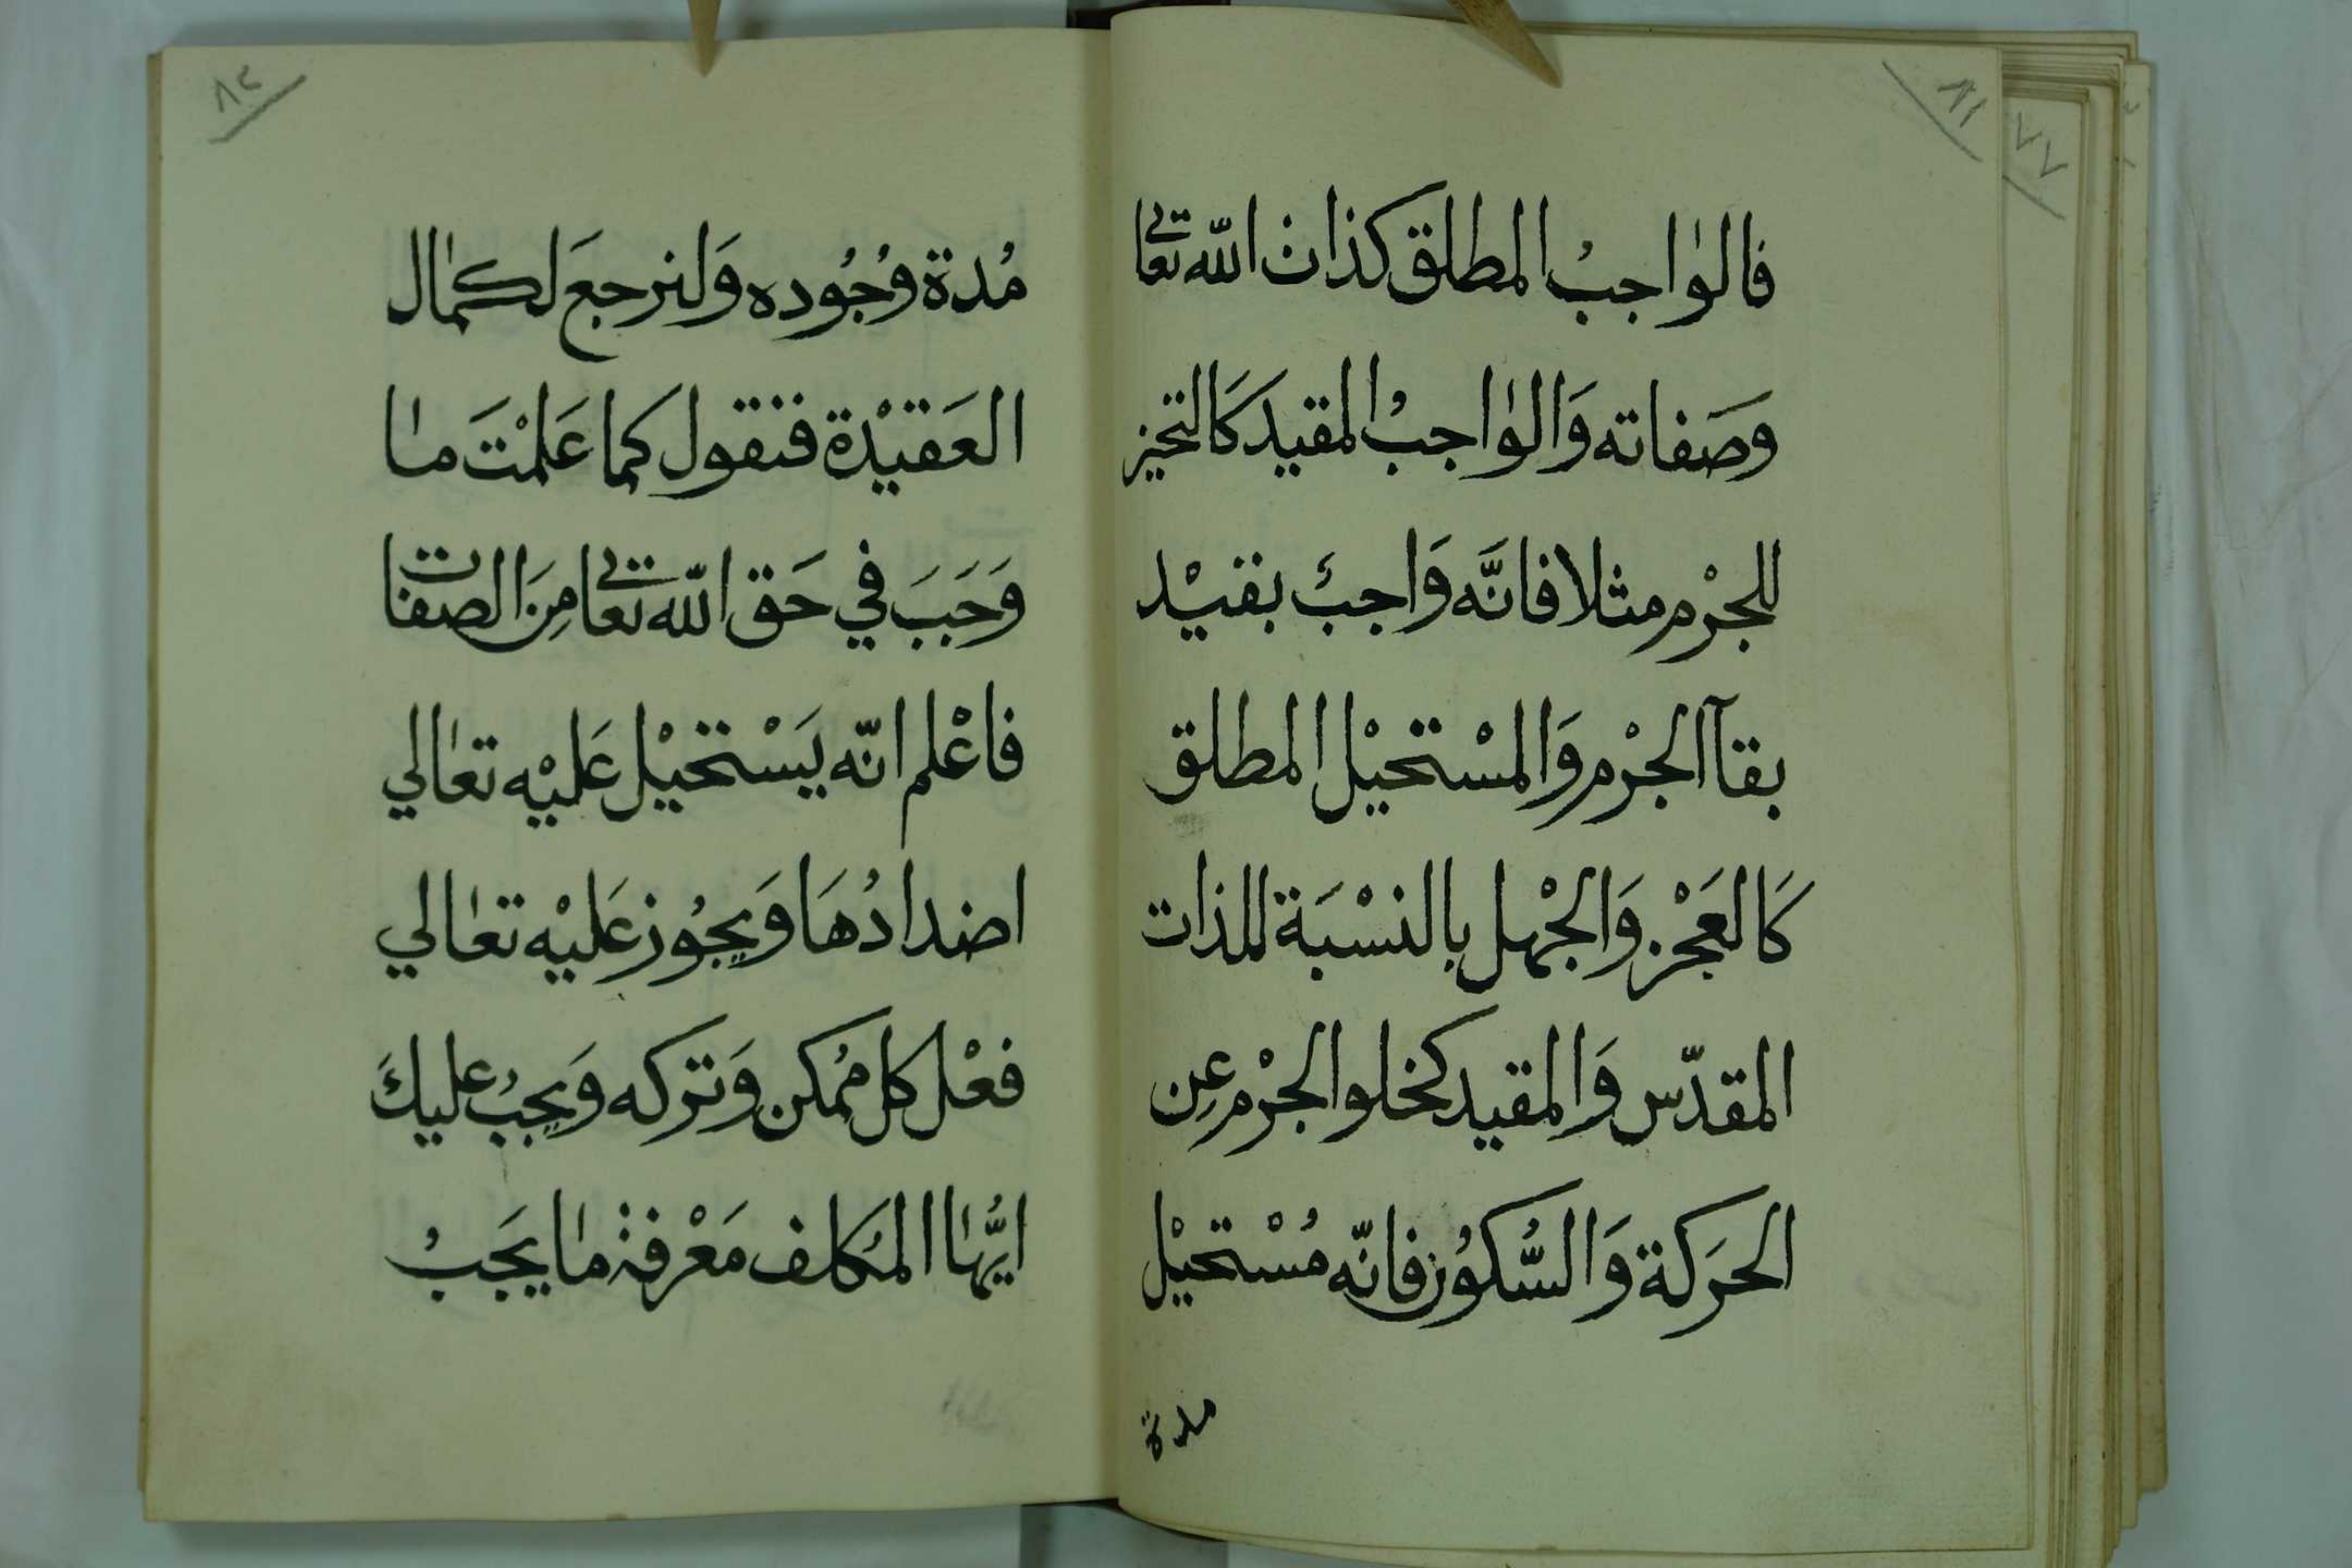 ٨١
٧٧
فالوٰاجبُ المطلق كذات الله تعالى
وَصَفاته وَالوٰاجبْ المقيد كَالتحيز
للجْرم مثلا فانَّه وَاجبٌ بقيْد
بقآ الجْرم وَالمسْتحيْل المطلق
كَالعَجْز وَالجْهل بالنسْبَة للذات
المقدّس وَالمقيد كخلو الجْرم عِن
الحرَكة وَالسُّكوُن فانّه مُسْتحيْل
مدة
٨٢
مُدة وُجُوده وَلنرجعَ لكمٰال
العَقيْدة فنقول كما عَلمْتَ مٰا
وَجَبَ في حَق الله تعالى مِنَ الصفات
فاعْلم انّه يَسْتحيْل عَليْه تعٰالي
اضدادُهَا وَيجُوز عَليْه تعٰالي
فعْل كل ممُكن وَتركه وَيجبُ عليكَ
ايُّهٰا المكَلف مَعْرفة مٰا يجَبْ